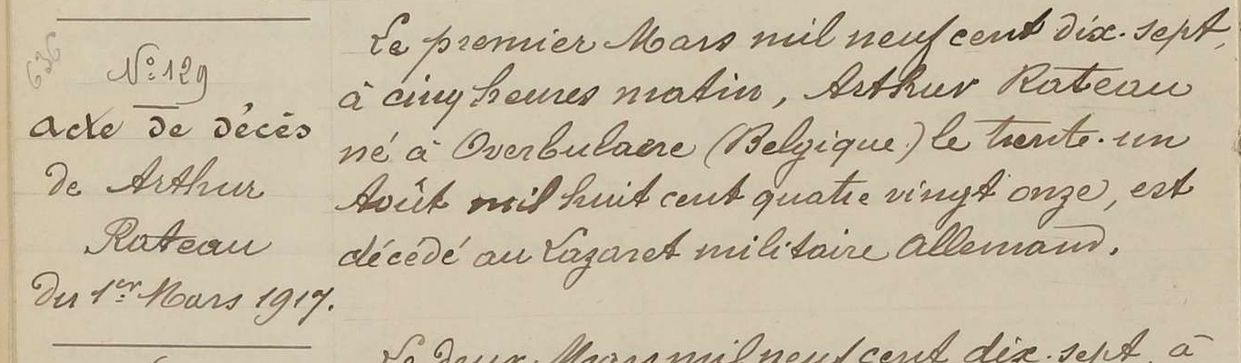 636
Nº 129
acte de décès
de Arthur
Rateau
du 1er Mars 1917.
Le premier Mars mil neuf cent dix-sept,
à cinq heures matin, Arthur Rateau
né à Overbulaere (Belgique) le trente-un
Août mil huit cent quatre vingt onze, est
décédé au Lazaret militaire Allemand.
Le deux Mars mil neuf cent dix-sept à